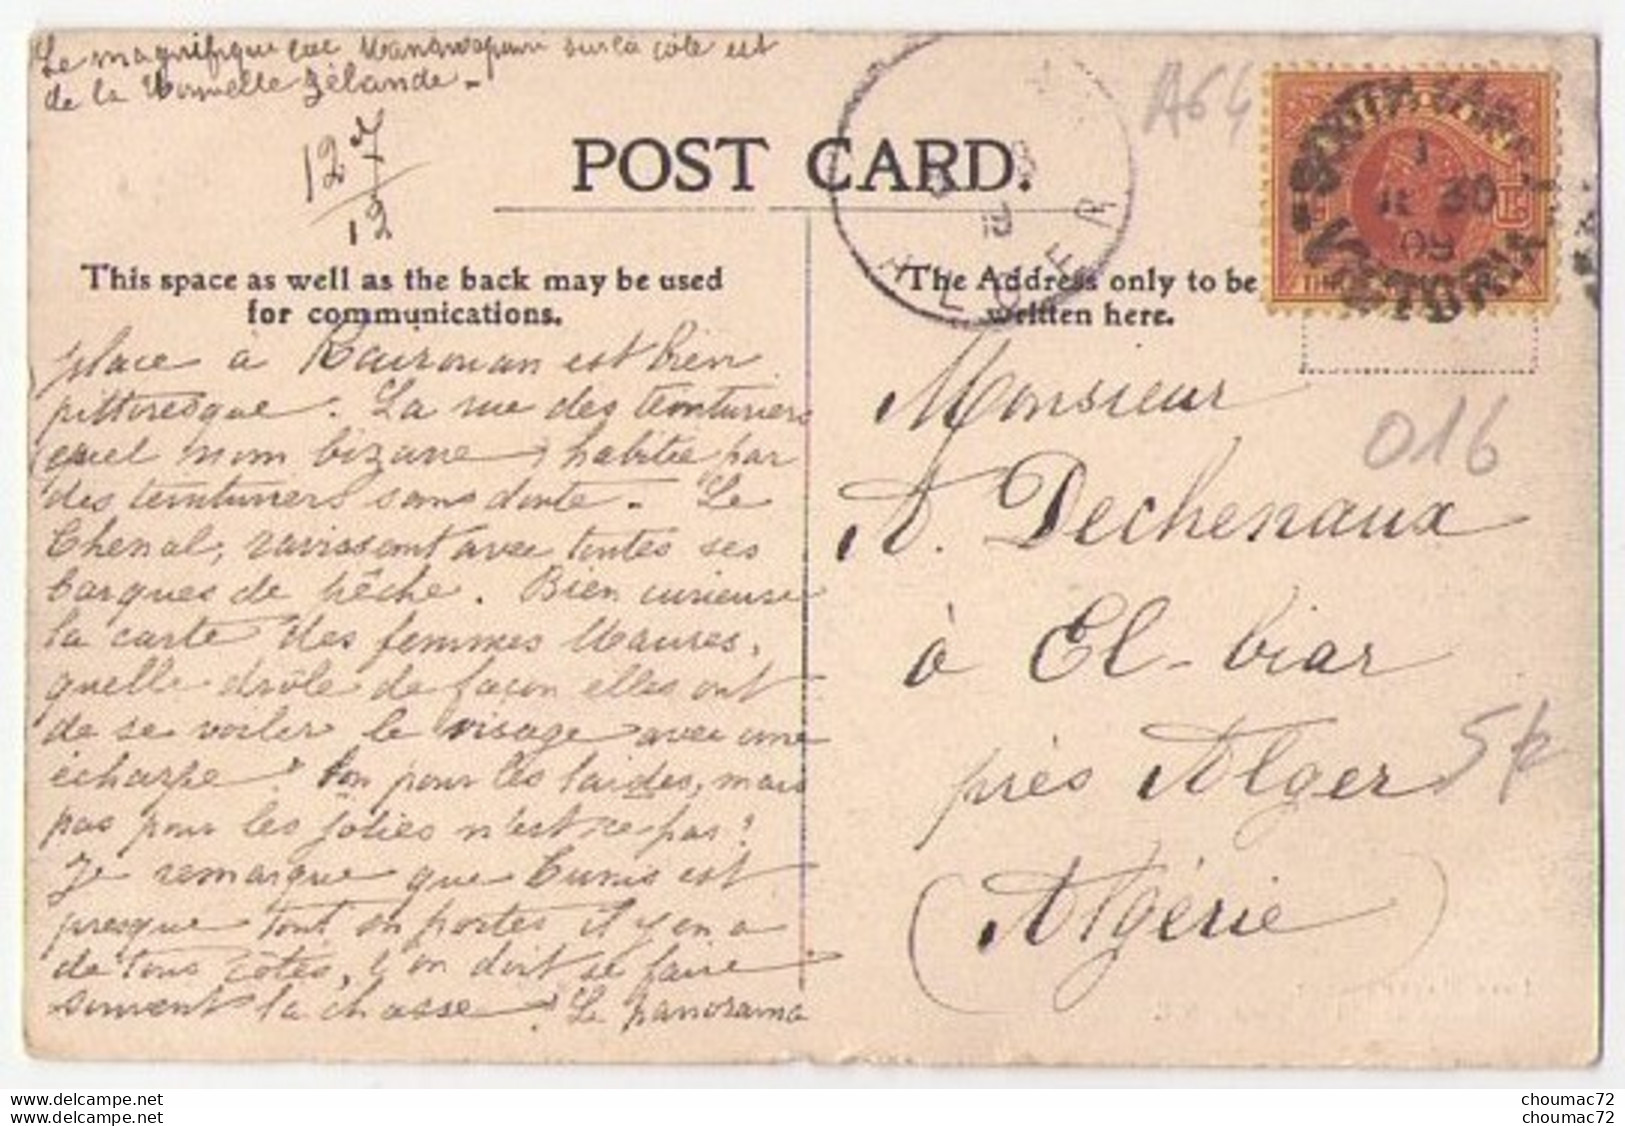 Le magnifique lac Wanawapouri sur la côte est
de la Nouvelle Zélande _
127
12
POST CARD.
This space as well as the back may be used
for communications.
The Address only to be
written here.
ALGER
A64
VICTORIA
1
30
08
place à Kairouan est bien
pittoresque. La rue des teinturiers
quel nom bizarre, habitée par
des teinturiers sans doute. Le
Chenal, ravissant avec toutes ses
barques de pêche. Bien curieuse
la carte des femmes Maures,
quelle drôle de façon elles ont
de se voiler le visage avec une
écharpe! bon pour les laides, mais
pas pour les jolies n'est ce pas?
Je remarque que Tunis est
presque tout en portes il y en a
de tous côtés, l'on doit se faire
souvent la chasse! Le panorama
Monsieur
A. Dechenaux
à El-biar
près Alger
(Algérie)
016
choumac72
choumac72
choumac72
choumac72